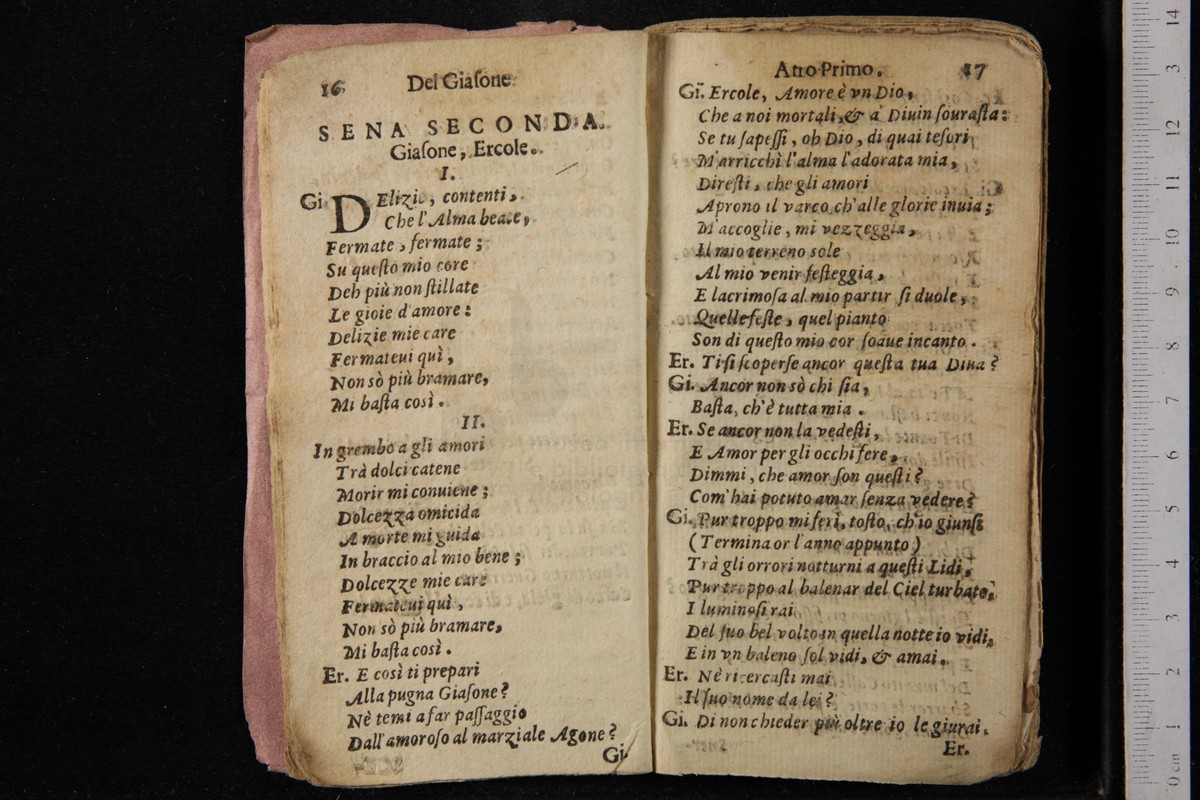 16
Del Giaſone.
SENA SECONDA.
Giaſone, Ercole.
I.
Gi. DElizie, contenti,
Che l'Alma beate,
Fermate, fermate;
Su queſto mio core
Deh più non ſtillate
Le gioie d'amore:
Delizie mie care
Fermateui quì,
Non sò più bramare,
Mi baſta così.
II.
In grembo a gli amori
Trà dolci catene
Morir mi conuiene;
Dolcezza omicida
A morte mi guida
In braccio al mio bene;
Dolcezze mie care
Fermateui quì,
Non sò più bramare,
Mi baſta così.
Er. E così ti prepari
Alla pugna Giaſone?
Nè temi a far paſſaggio
Dall'amoroſo al marziale Agone?
Gi.
Atto Primo.
17
Gi. Ercole, Amore è vn Dio,
Che a noi mortali, & a Diuin ſouraſta:
Se tu ſapeſſi, oh Dio, di quai teſori,
M'arricchì l'alma l'adorata mia,
Direſti, che gli amori
Aprono il varco, ch'alle glorie inuia;
M'accoglie, mi vezzeggia,
Il mio terreno sole
Al mio venir feſteggia,
E lacrimoſa al mio partir ſi duole,
Quelle feſte, quel pianto
Son di queſto mio cor ſoaue incanto.
Er. Ti ſi ſcoperſe ancor queſta tua Diua?
Gi. Ancor non sò chi ſia,
Baſta, ch'è tutta mia.
Er. Se ancor non la vedeſti,
E Amor per gli occhi fere,
Dimmi, che amor ſon queſti?
Com'hai potuto amar ſenza vedere?
Gi. Pur troppo mi ferì, toſto, ch'io giunſi
(Termina or l'anno appunto)
Trà gli orrori notturni a queſti Lidi,
Pur troppo al balenar del Ciel turbato,
I luminoſi rai
Del ſuo bel volto in quella notte io vidi,
E in vn baleno ſol vidi, & amai.
Er. Nè ricercaſti mai
Il ſuo nome da lei?
Gi. Di non chieder più oltre io le giurai.
Er.